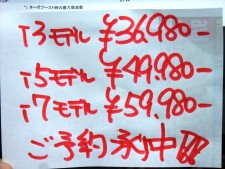 *: ターボブースト時の最大周波数
i3モデル ¥36,980-
i5モデル ¥49,980-
i7モデル ¥59,980-
ご予約承り中!!